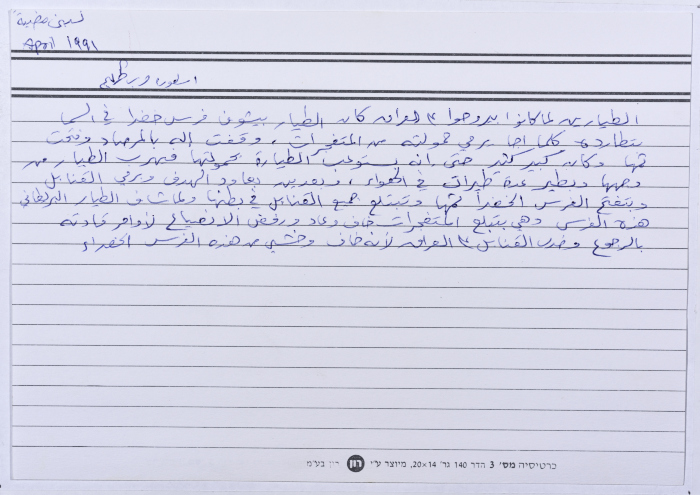 April 1991
الطيارين لما كانوا بيروحوا ع العراق كان الطيار بيشوف فرس خضرا في السما
بتطارده كلما اجا يرمي حمولته من المتفجرات، وقفت إله بالمرصاد وفتحت
تمها وكان كبير كثير حتى انه يستوعب الطيارة بحمولتها فيهرب الطيار من
وجهها وبطير عدة طيرات في الهواء، وبعدين بعاود الهدف ويرمي القنابل
وبتفتح الفرس الخضرا تمها وتبتلع جميع القنابل في بطنها ولما شاف الطيار البريطاني
هذه الفرس وهي بتبلع المتفجرات خاف وعاد ورفض الانصياع لأوامر قيادته
بالرجوع وضرب القنابل ع العراق لأنه خاف وخشي من هذه الفرس الخضراء
כרטיסיה מס' 3 הדר 140 גר' 14×20, מיוצר ע"י רון רון בע"מ